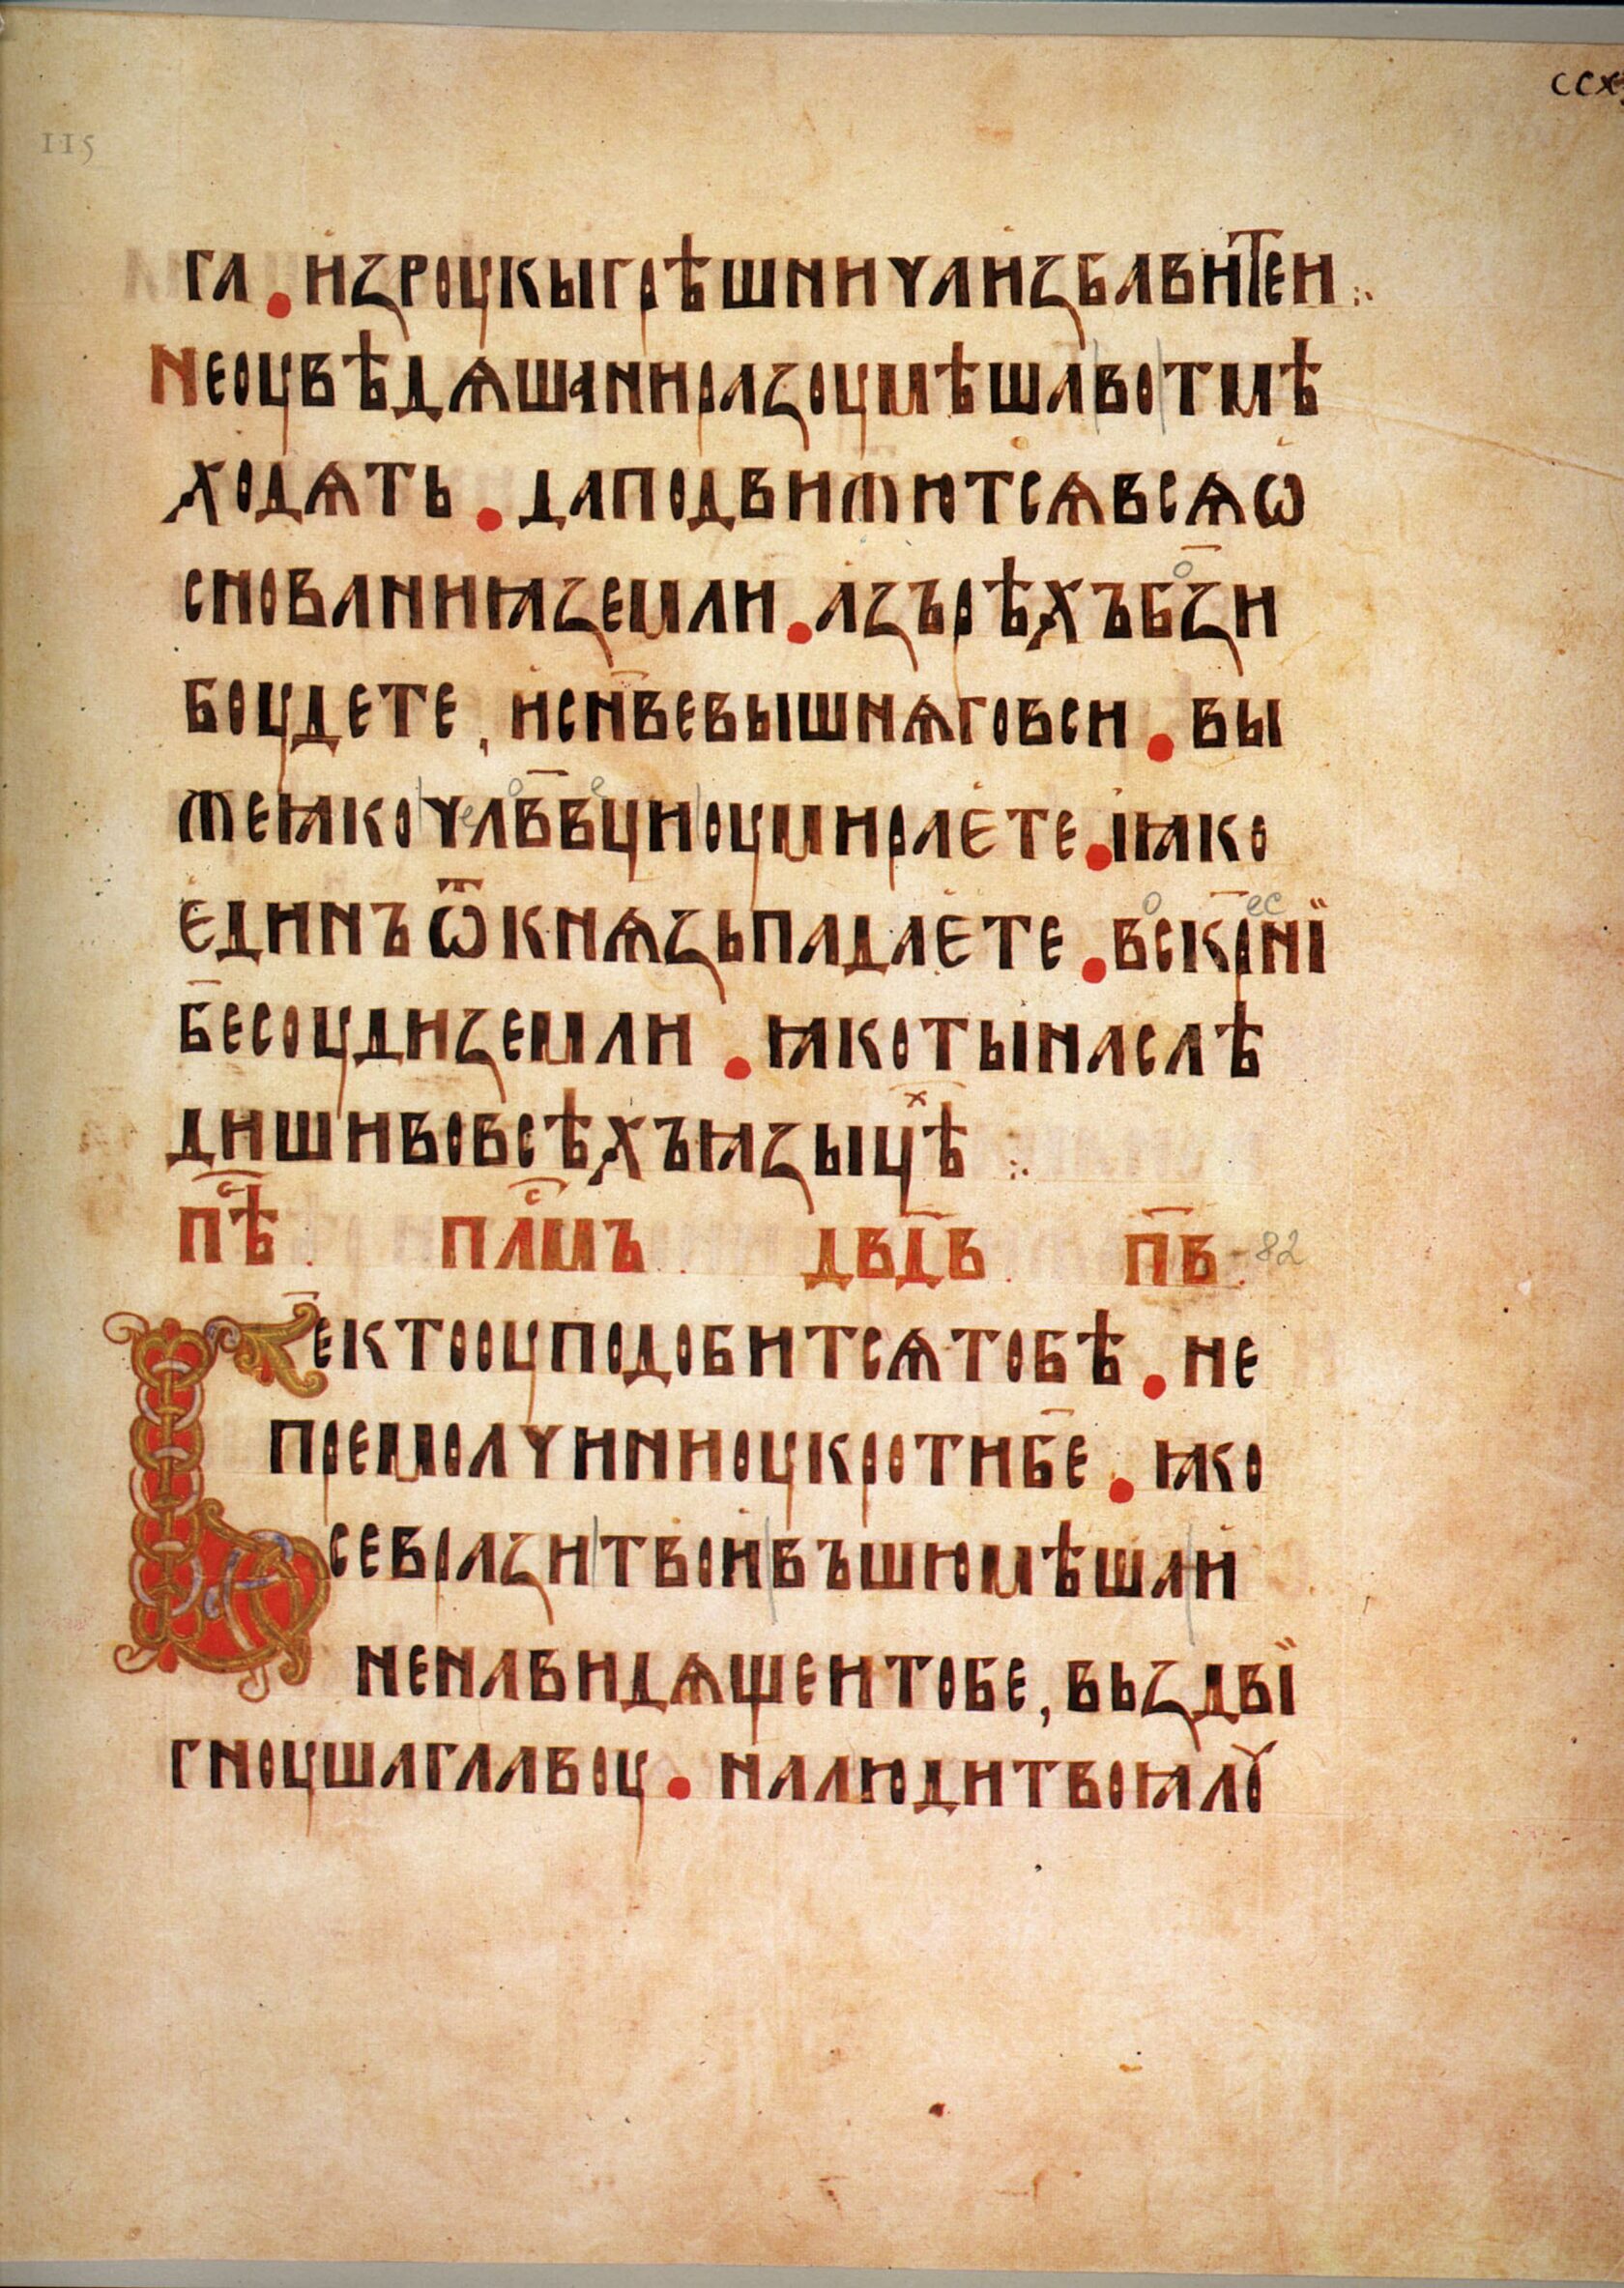 ссх
115
га . изроукыгрѣшничаизбавитеи :.
Неоувѣдѧшанироазоумѣшавотмѣ
ходѧть . даподвижютсѧвсѧѡ
снованиꙗземли . азърѣхъбзи
боудете , исн҃вевышнѧгобси . вы
жеꙗкочл҃вв҃циоумираете . іꙗко
единъѿкнѧзьпадаете . вск҃рниї
б҃есоудиземли . ꙗкотынаслѣ
дишивовсѣхъꙗзыцѣⷯ :.
пѣⷭ҇ . плⷭ҇мъ . дв҃дв . п҃в . 82
Б҃ектооуподобитсѧтобѣ . не
премолчиниоукротиб҃е . ꙗко
севразитвоивъшюмѣшаи
ненавидѧщеитобе , вьздвї
гноушаглавоу . налюдитвоꙗлꙋ